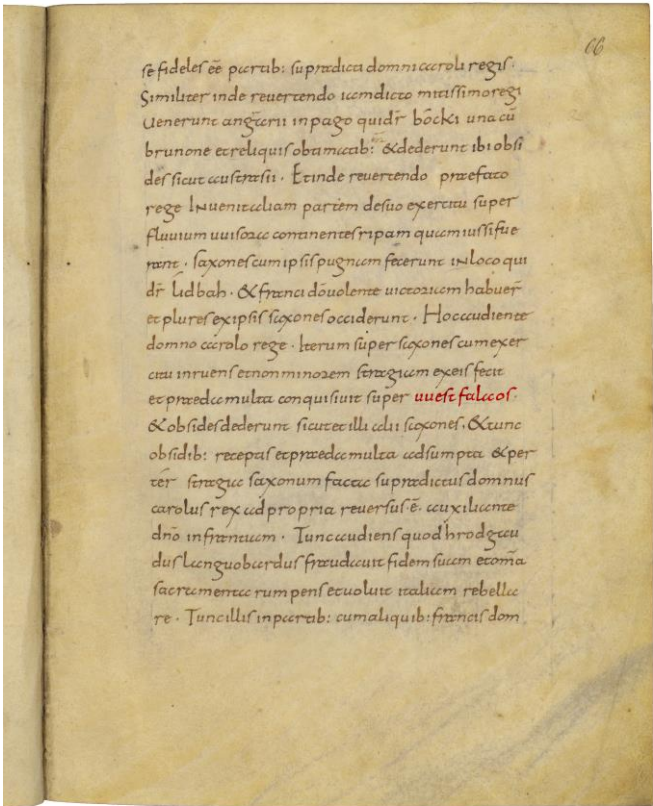 66
se fideles eē partib: supradicti domni caroli regis.
Similiter inde reuertendo iamdicto mitissimo regi
Uenerunt angrarii in pago qui dr̄ bōcki una cū
brunone et reliquis obtimatib: & dederunt ibi obsi
des sicut austrasii. Et inde reuertendo praefato
rege Inuenit aliam partem de suo exercitu super
fluuium uuisora continentes ripam quam iussi fue
rant. saxones cum ipsis pugnam fecerunt in loco qui
dr̄ lidbah. & franci dō uolente uictoriam habuer̄
et plures ex ipsis saxones occiderunt. Hoc audiente
domno carolo rege. Iterum super saxones cum exer
citu inruens et non minorem stragiam ex eis fecit
et praeda multa conquisiuit super uuestfalaos.
& obsides dederunt sicut et illi alii saxones. & tunc
obsidib: receptis et praeda multa adsumpta & per
ter stragia saxonum facta supradictus domnus
carolus rex ad propria reuersus. ē. auxiliante
dn̄o in frantiam. Tunc audiens quod hrodgau
dus languobardus fraudauit fidem suam et om̄a
sacramenta rumpens et uoluit italiam rebella
re. Tunc illis in partib: cum aliquib: francis dom